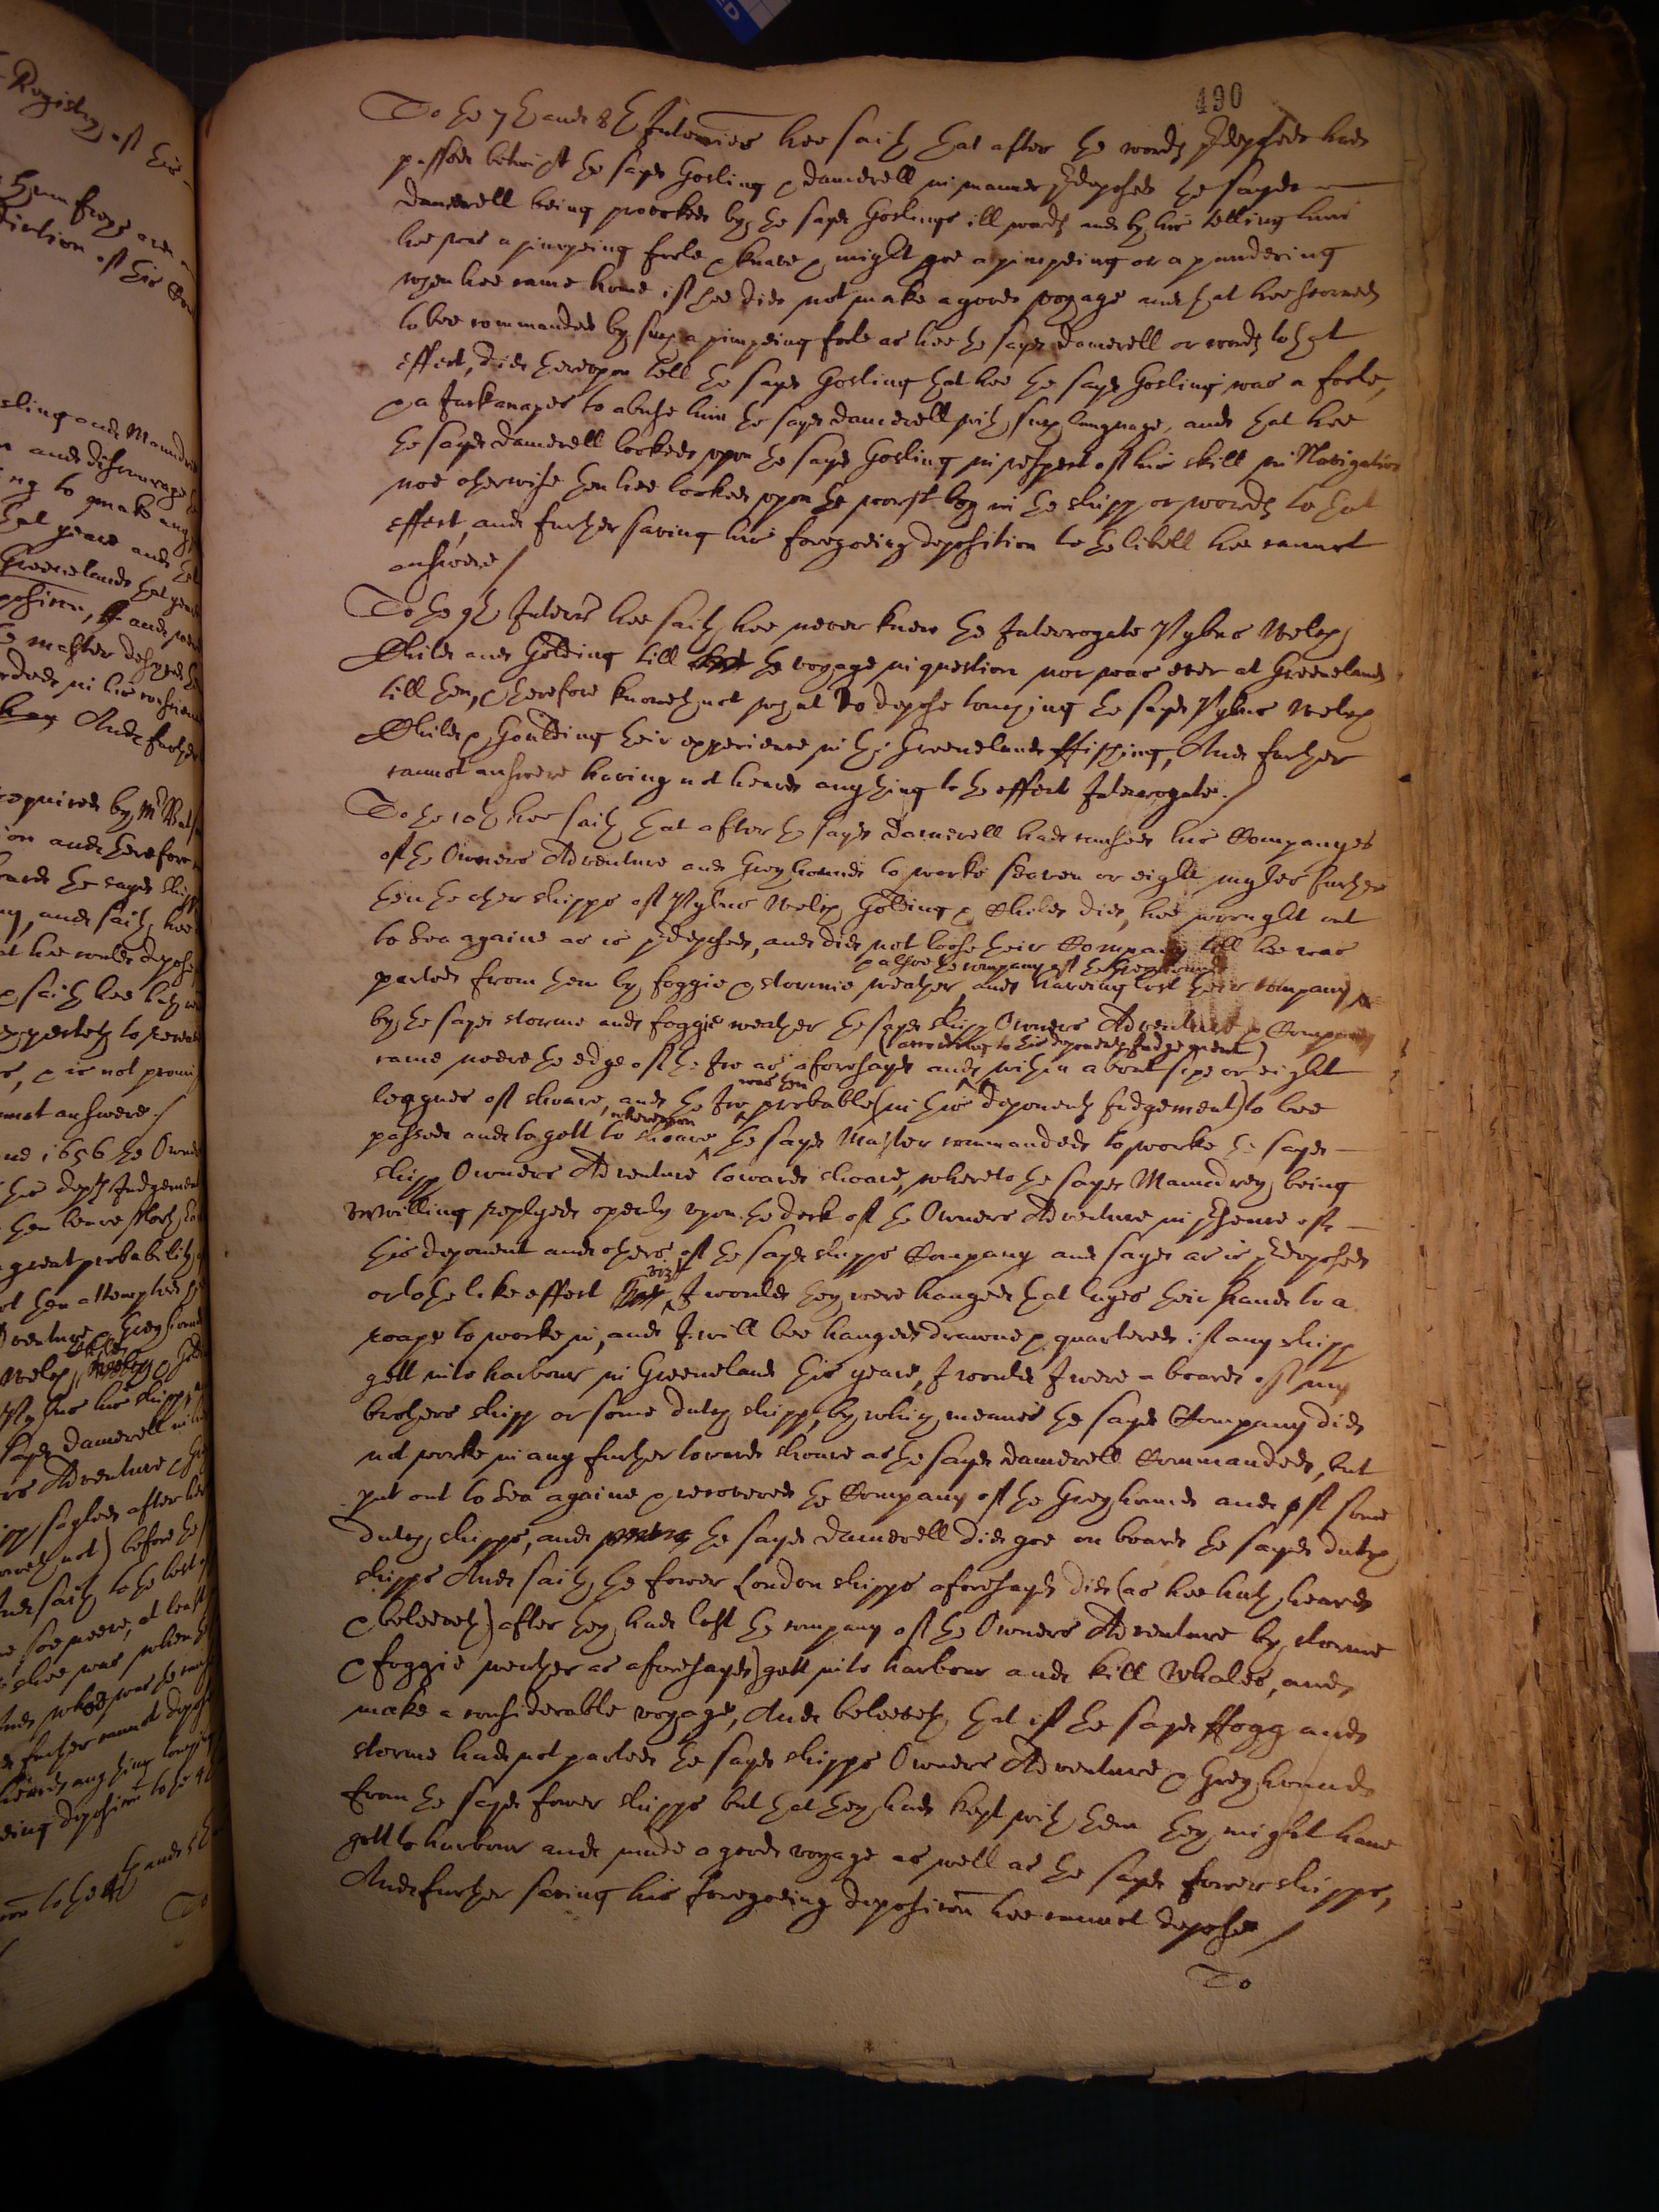 490
To the 7th and 8th Interries hee saith that after the words predeposed had
passed betwixt the sayd Gosling & Damerell in manner predeposed the sayd
Damerell being provoked by the sayd Goslings ill words and by his telling him
hee was a pimpeing foole & knave & might goe a pimpeing or a pandering
when hee came home if hee did not make a good voyage and that hee scorned
to bee commanded by such a pimpeing foole as hee the sayd Damerell or words to that
effect, did thereupon tell the sayd Gosling that hee the sayd Gosling was a foole,
& a Jackanapes to abuse him the sayd Damerell with such language, and that hee
the sayd Damerell looked upon the sayd Gosling in respect of his skill in Navigation
noe otherwise then hee looked upon the worst boy in the shipp or words to that
effect, and further saving his foregoeing deposition to the libell hee cannot
answere /
To the 9th Interrie hee saith hee never knew the Interrogate Pybus Welch
Childe and Golding till the voyage in question nor was ever at Greeneland
till then, & therefore knoweth not what to depose touching the sayd Pybus Welch
Childe & Goulding their experience in the Greeneland ffishing, And further
cannot answere having not heard any thing to the effect Interrogate. /
To the 10th hee saith that after the sayd Damerell had caused his Companyes
of the Owners Adventure and Greyhound to worke seaven or eight myles further
then the other shipps of Pybus Welch Golding & Childe did, hee wrought out
to Sea againe as is predeposed, and did not loose their Company till hee was
parted from them by foggie & stormie weather and haveing lost their company
& alsoe the company of the Greyhound
by the sayd storme and foggie weather the sayd shipp Owners Adventure & Company
came neere the edge of the Ice as aforesayd and within about sixe or eight
(according to this deponents Judgement)
leagues of shoare, and the Ice probable (in this deponents Judgement) to bee
was then
passed and to gett to shoare the sayd Master commanded to worke the sayd
whereupon
shipp Owners Adventure towards shoare, whereto the sayd Mamdrey being
unwilling replyed openly upon the deck of the Owners Adventure in presence of
this deponent and others of the sayd shipps Company and sayd as is predeposed
or to the like effect vizt I would they were hanged that layes their hands to a
roape to worke in, and I will bee hanged drawne & quartered if any shipp
gett into harbour in Greeneland this yeare, I would I were a board of my
brothers shipp or some dutch shipp, by which meanes the sayd Company did
not worke in any further towards shoare as the sayd Damerell Commanded, but
put out to Sea againe & recovered the Company of the Greyhound and of some
dutch shipps, and the sayd Damerell did goe on board the sayd dutch
shipps And saith the fower London shipps aforesayd did (as hee hath heard
& beleeveth) after they had lost the company of the Owners Adventure by storme
& foggie weather as aforesayd) gett into harbour and kill Whales, and
make a considerable voyage, And beleeveth that if the sayd ffogg and
storme had not parted the sayd shipps Owners Adventure & Greyhound
from the sayd fower shipps but that they had kept with them they might have
gott to harbour and made a good voyage as well as the sayd fower shipps,
And further saving his foregoeing deposition hee cannot depose /
To